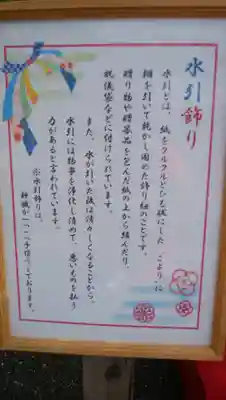 水引飾り
水引とは、紙をクルクルとひも状にした「こより」に
糊を引いて乾かし固めた飾り紐のことです。
贈り物や贈答品を包んだ紙の上から結んだり、
祝儀袋などに付けられています。
また、水が引いた後は清々しくなることから、
水引には物事を浄化し清めて、悪いものを払う
力があると言われています。
※水引飾りは、
神職が一つ一つ手作りしております。